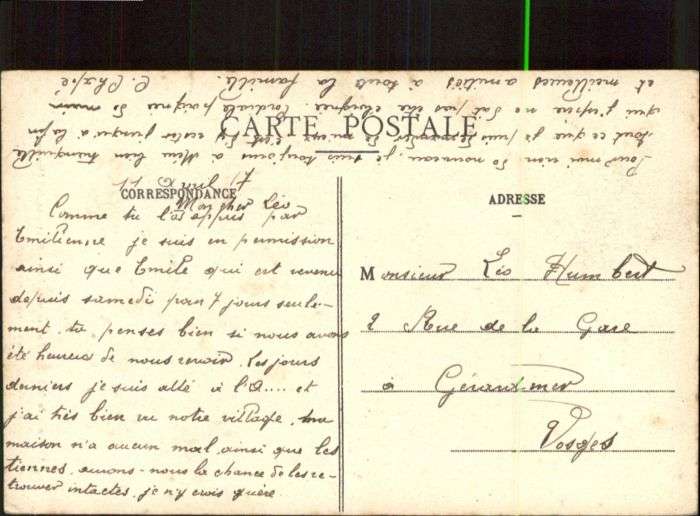 CARTE POSTALE
CORRESPONDANCE
ADRESSE
Mon cher Léo
Comme tu l'as appris par
Emilienne je suis en permission
ainsi que Emile qui est revenu
depuis samedi pour 7 jours seule-
ment. tu penses bien si nous avons
été heureux de nous revoir. Les jours
derniers je suis allé à l'O.... et
j'ai très bien vu notre village. ma
maison n'a aucun mal ainsi que les
tiennes. aurons-nous la chance de les re-
trouver intactes. je n'y crois guère.
Pour moi rien de nouveau, je suis toujours à bien tranquille
tout ce que je puis c'est d'y rester jusqu'à la fin
qui j'espère ne soit pas très éloignée. Cordiale poignée de main
et meilleures amitiés à toute la famille.
Monsieur Léo Humbert
2 Rue de la Gare
à Gérardmer
Vosges